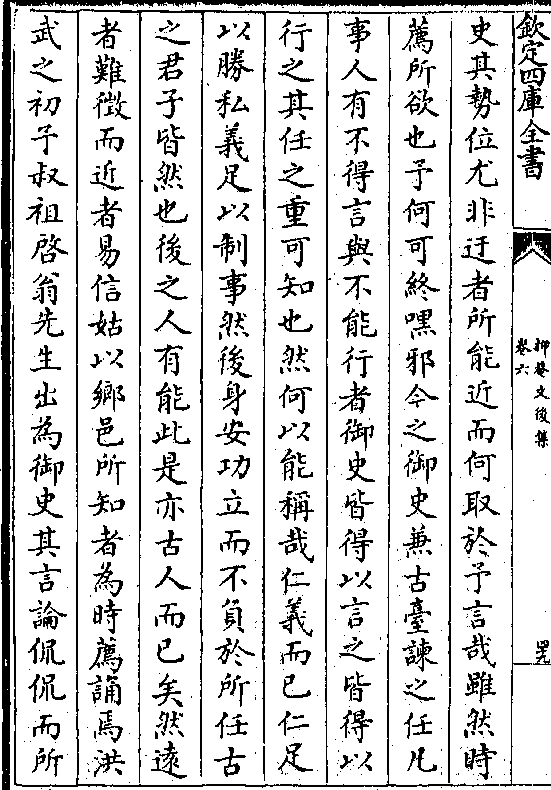 欽定四庫全書
抑菴文後集
卷六
四九
史其勢位尤非迂者所能近而何取於予言哉雖然時
薦所欲也予何可終嘿邪今之御史兼古臺諫之任凡
事人有不得言與不能行者御史皆得以言之皆得以
行之其任之重可知也然何以能稱哉仁義而已仁足
以勝私義足以制事然後身安功立而不負於所任古
之君子皆然也後之人有能此是亦古人而已矣然遠
者難徴而近者易信姑以鄉邑所知者為時薦誦焉洪
武之初予叔祖啓翁先生出為御史其言論侃侃而所